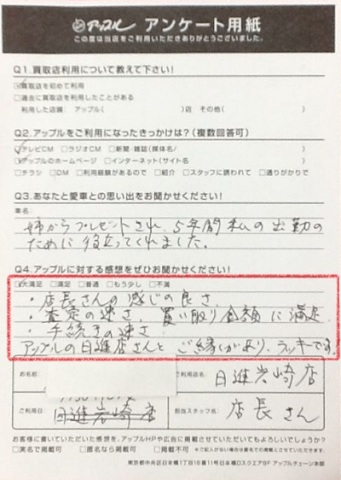 アップル アンケート用紙
この度は当店をご利用いただきありがとうございました。
Q1.買取店利用について教えて下さい!
買取店を初めて利用
□過去に買取店を利用したことがある
利用した店舗: アップル( )店 その他( )
Q2.アップルをご利用になったきっかけは?(複数回答可)
テレビCM □ラジオCM □新聞・雑誌(媒体名/ )
アップルのホームページ □インターネット(サイト名 )
□チラシ □DM □利用経験があるので □紹介 □スタッフに誘われて □通りがかりで
Q3.あなたと愛車との思い出をお聞かせください!
車名:
姉からプレゼントされ、5年間私の出勤の
ために役立ってくれました。
Q4.アップルに対する感想をぜひお聞かせください!
大満足 □満足 □普通 □もう少し □不満
・店長さんの感じの良さ
・査定の速さ、買い取り金額に満足
・手続きの速さ
アップルの日進店さんと ご縁があり、ラッキーです。
お名前:
ご利用店名: 日進岩崎店
ご利用日
日進岩崎店
担当スタッフ名: 店長さん
お客様に書いていただいた感想を、アップルHPや広告に掲載させていただいてもよろしいでしょうか?
□実名で掲載可 □匿名なら掲載可 □掲載不可
東京都中央区日本橋1丁目16番11号日本橋Dスクエア8F アップルチェーン本部